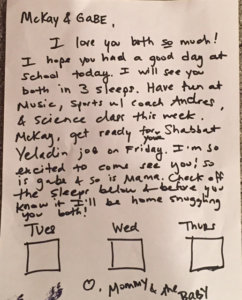 McKay & GABE,
I love you both so much!
I hope you had a good day at
school today. I will see you
both in 3 sleeps. Have fun at
Music, Sports w/ coach Andres,
& science class this week.
McKay, get ready for your Shabbat
Yeladim job on Friday. I'm so
excited to come see you! So
is gabe & so is Mama. Check off
the sleeps below & before you
know it I'll be home snuggling
you both!
Tues Wed Thurs
♡, Mommy & the BABY